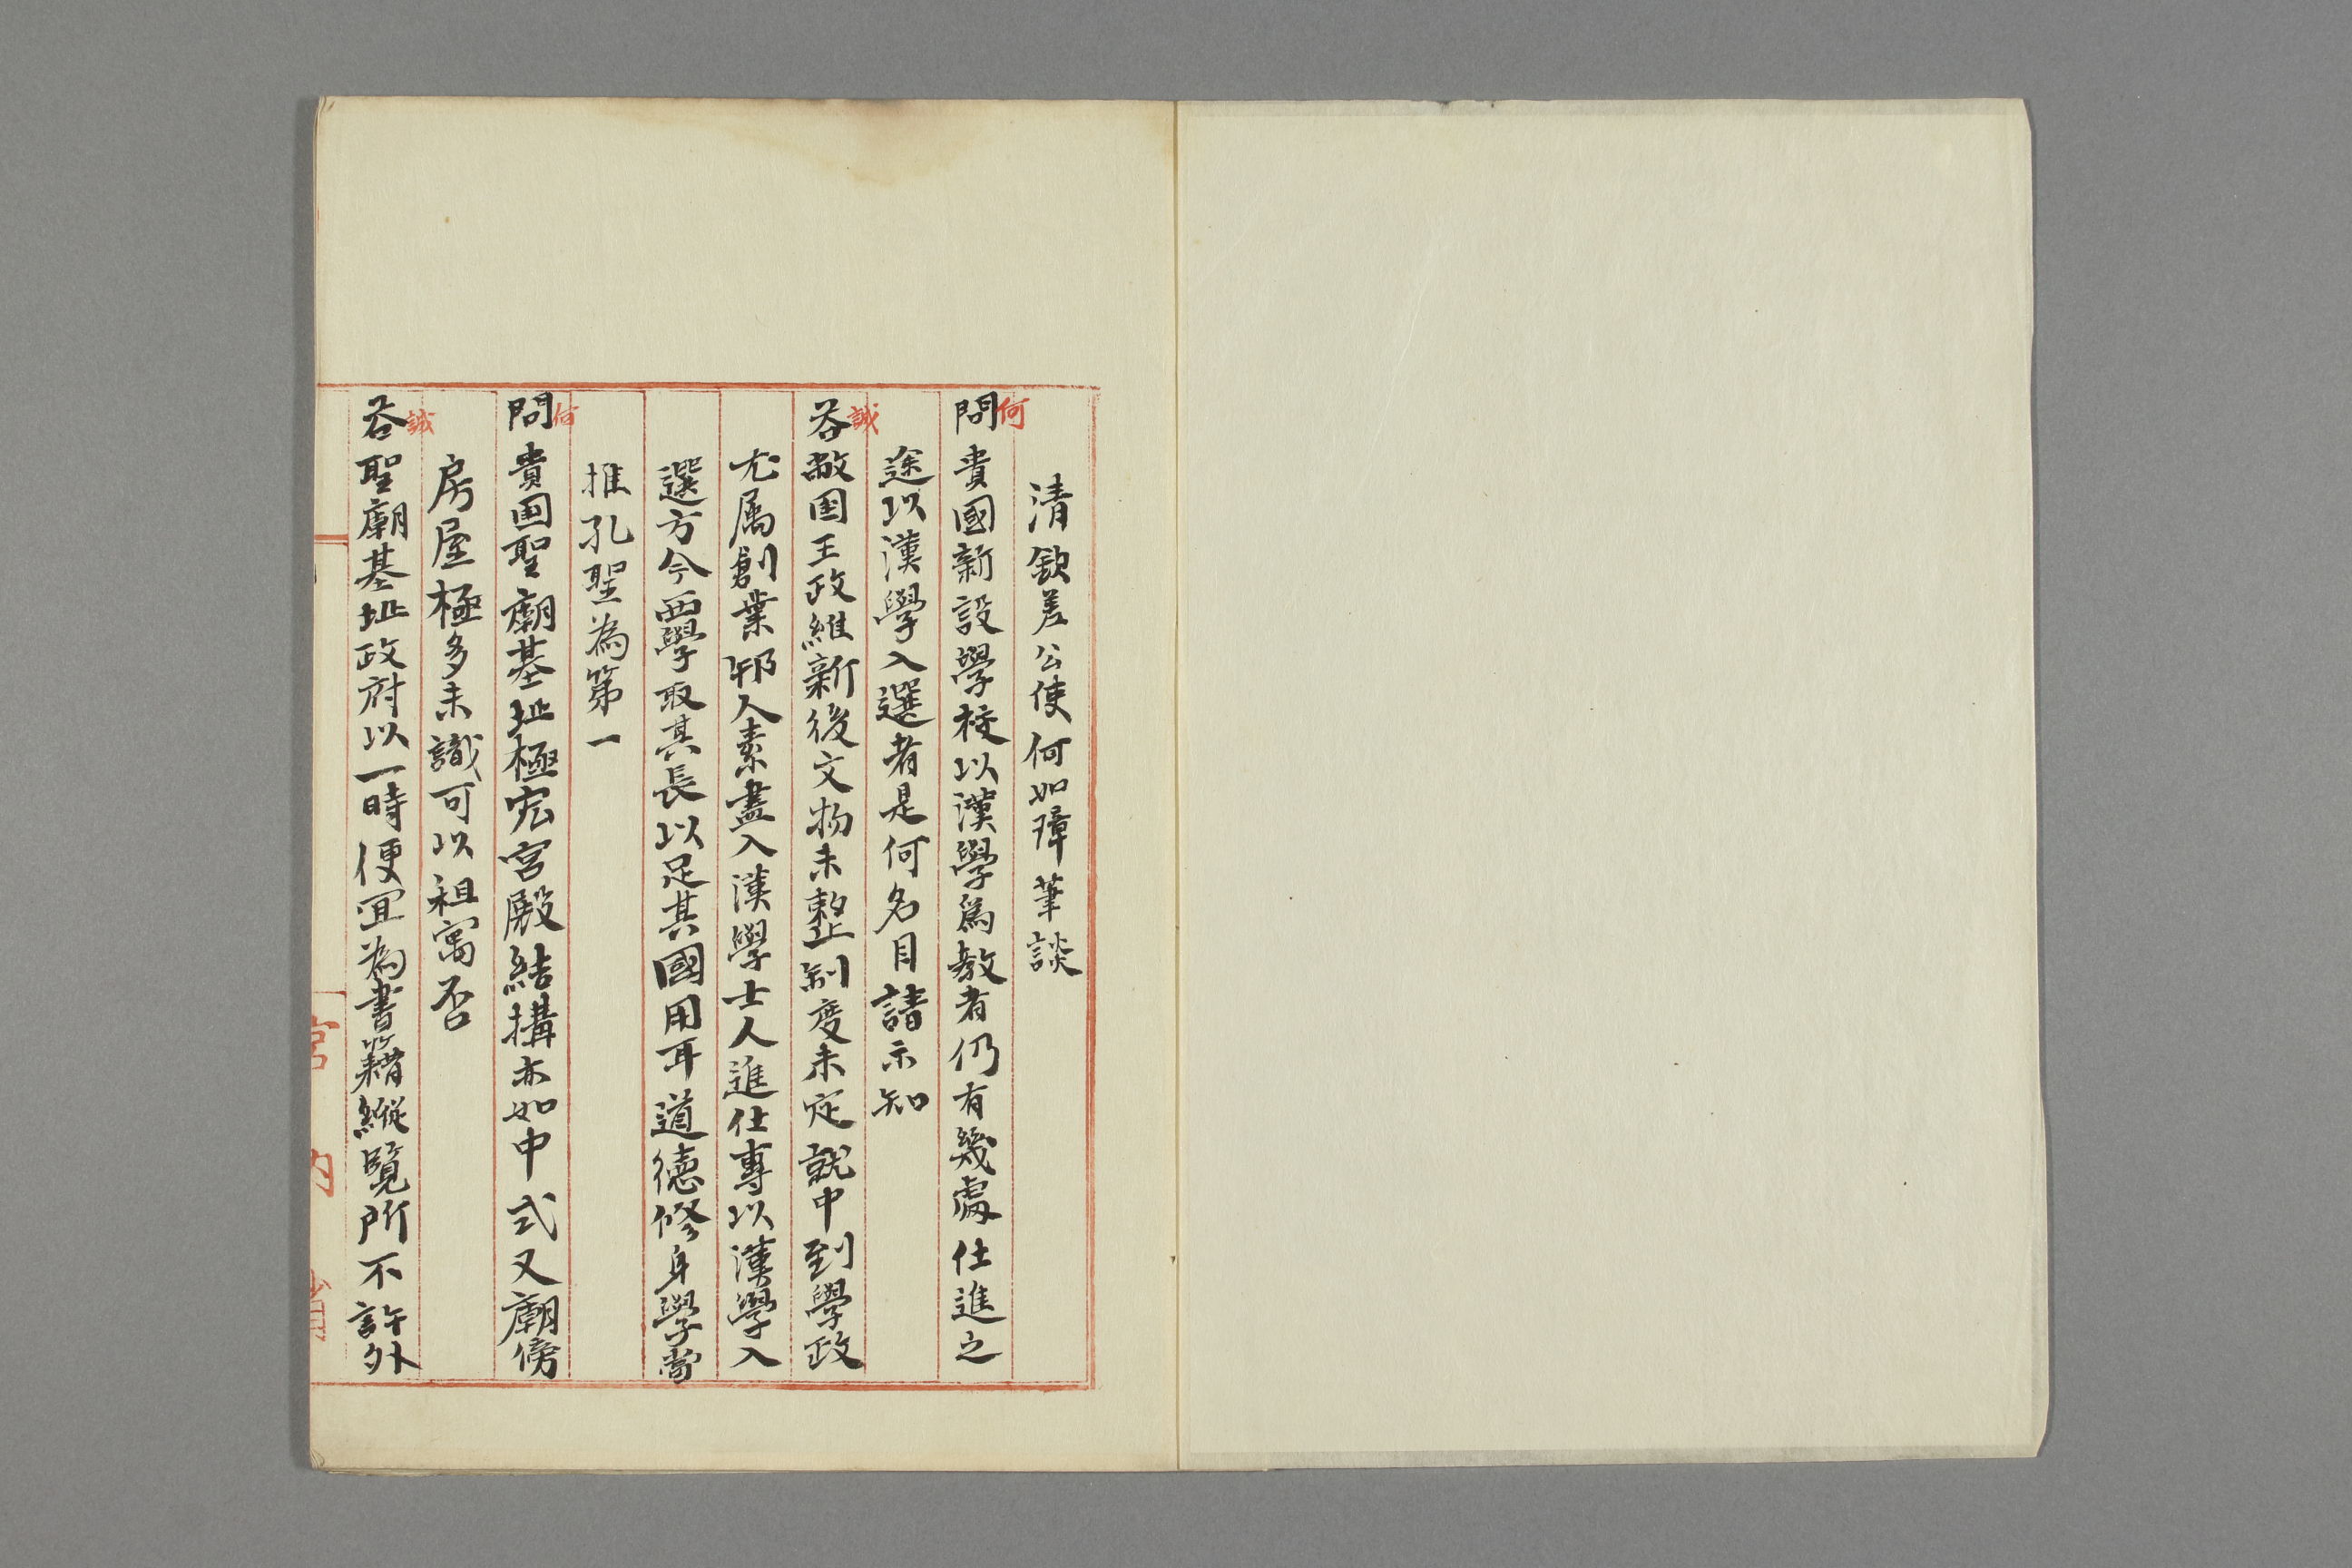 清欽差公使何如璋筆談
何
問貴國新設學校以漢學爲教者仍有幾處仕進之
途以漢學入選者是何名目請示知
誠
答敝国王政維新後文物未整制度未定就中到學政
尤属創業邦人素盡入漢學士人進仕専以漢學入
選方今西學取其長以足其國用耳道徳修身學嘗
推孔聖為第一
何
問貴国聖廟基址極宏宮殿結搆亦如中式又廟傍
房屋極多未識可以租寓否
誠
答聖廟基址政府以一時便宜為書籍縦覧所不許外
宮内省